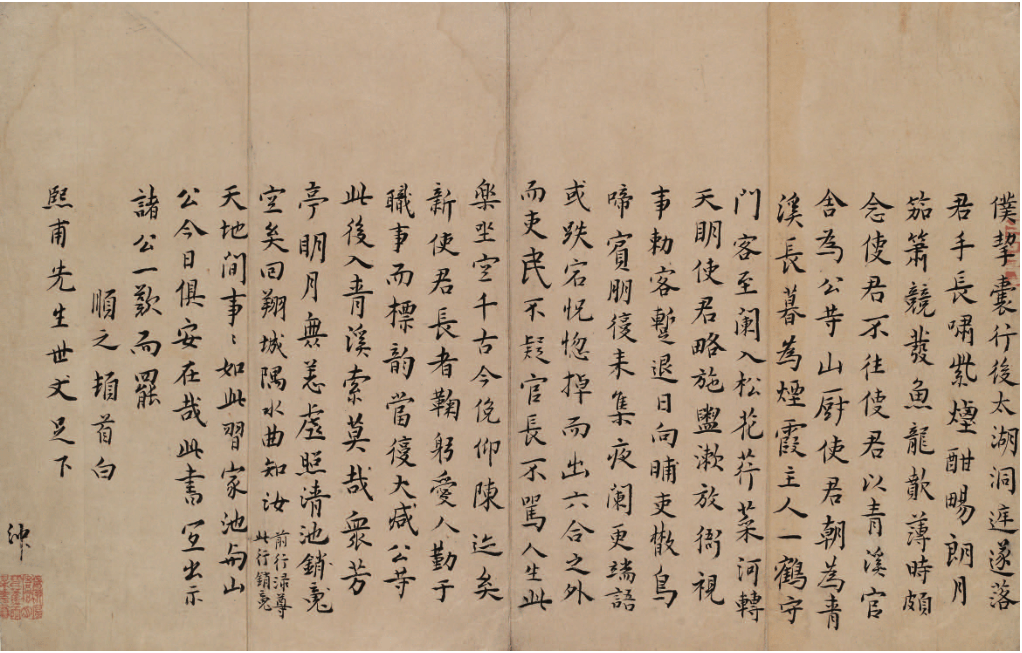 僕挈囊行後太湖洞庭遂落
君手長嘯紫煙酣暢朗月
茄簫競發魚龍歕薄時頗
念使君不往使君以青溪官
舍為公等山廚使君朝為青
溪長暮為煙霞主人一鶴守
門客至闌入松花芥菜河轉
天明使君略施盥漱放衙視
事勅客蹔退日向晡吏散鳥
啼賓朋復來集夜闌更端語
或跌宕怳惚掉而出六合之外
而吏民不疑官長不罵人生此
樂坐空千古今俛仰陳迹矣
新使君長者鞠躬愛人勤于
職事而標韵當復大减公等
此後入青溪索莫哉眾芳
亭明月無恙虛照清池銷竟
空矣回翔城隅水曲知汝
前行渌尊
此行銷竟
天地間事〻如此習家池與山
公今日俱安在哉此書宜出示
諸公一歎而罷
順之頓首白
熙甫先生世丈足下
沖